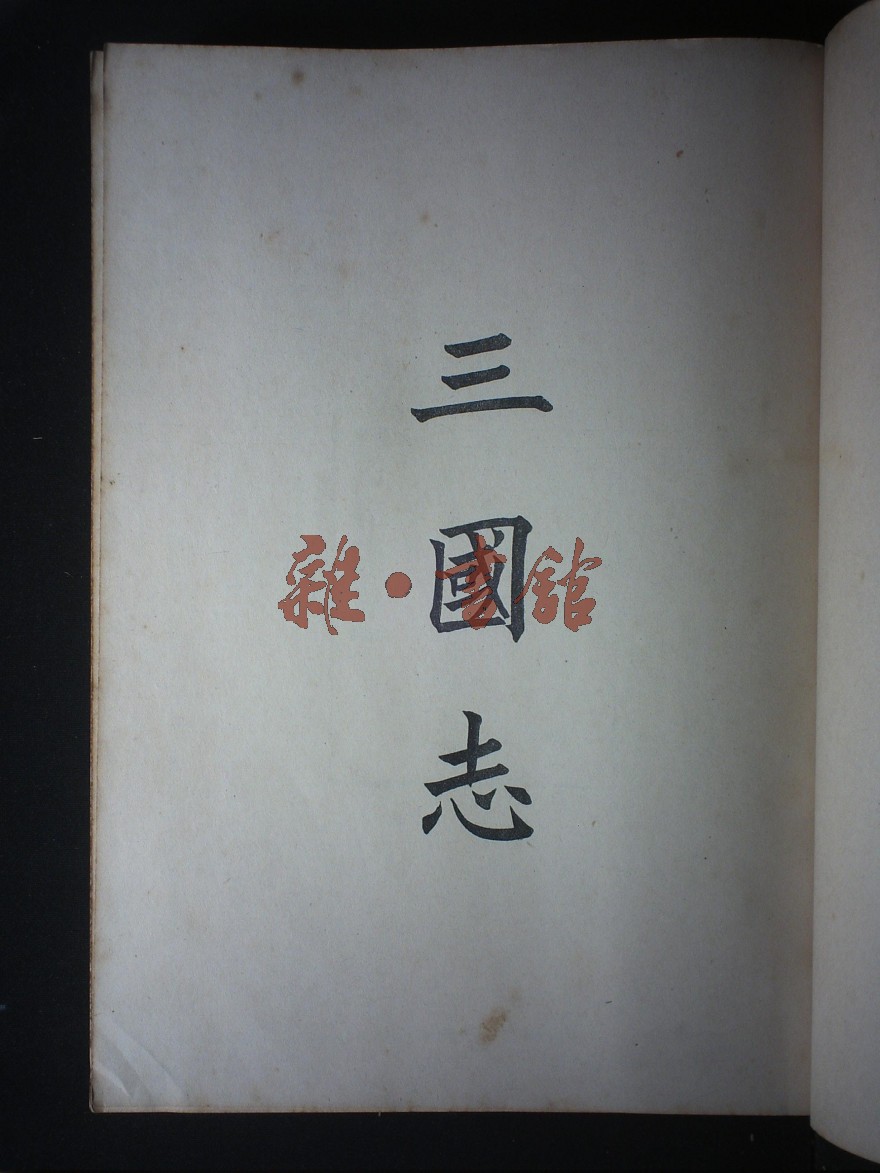 三國志
雜·書館